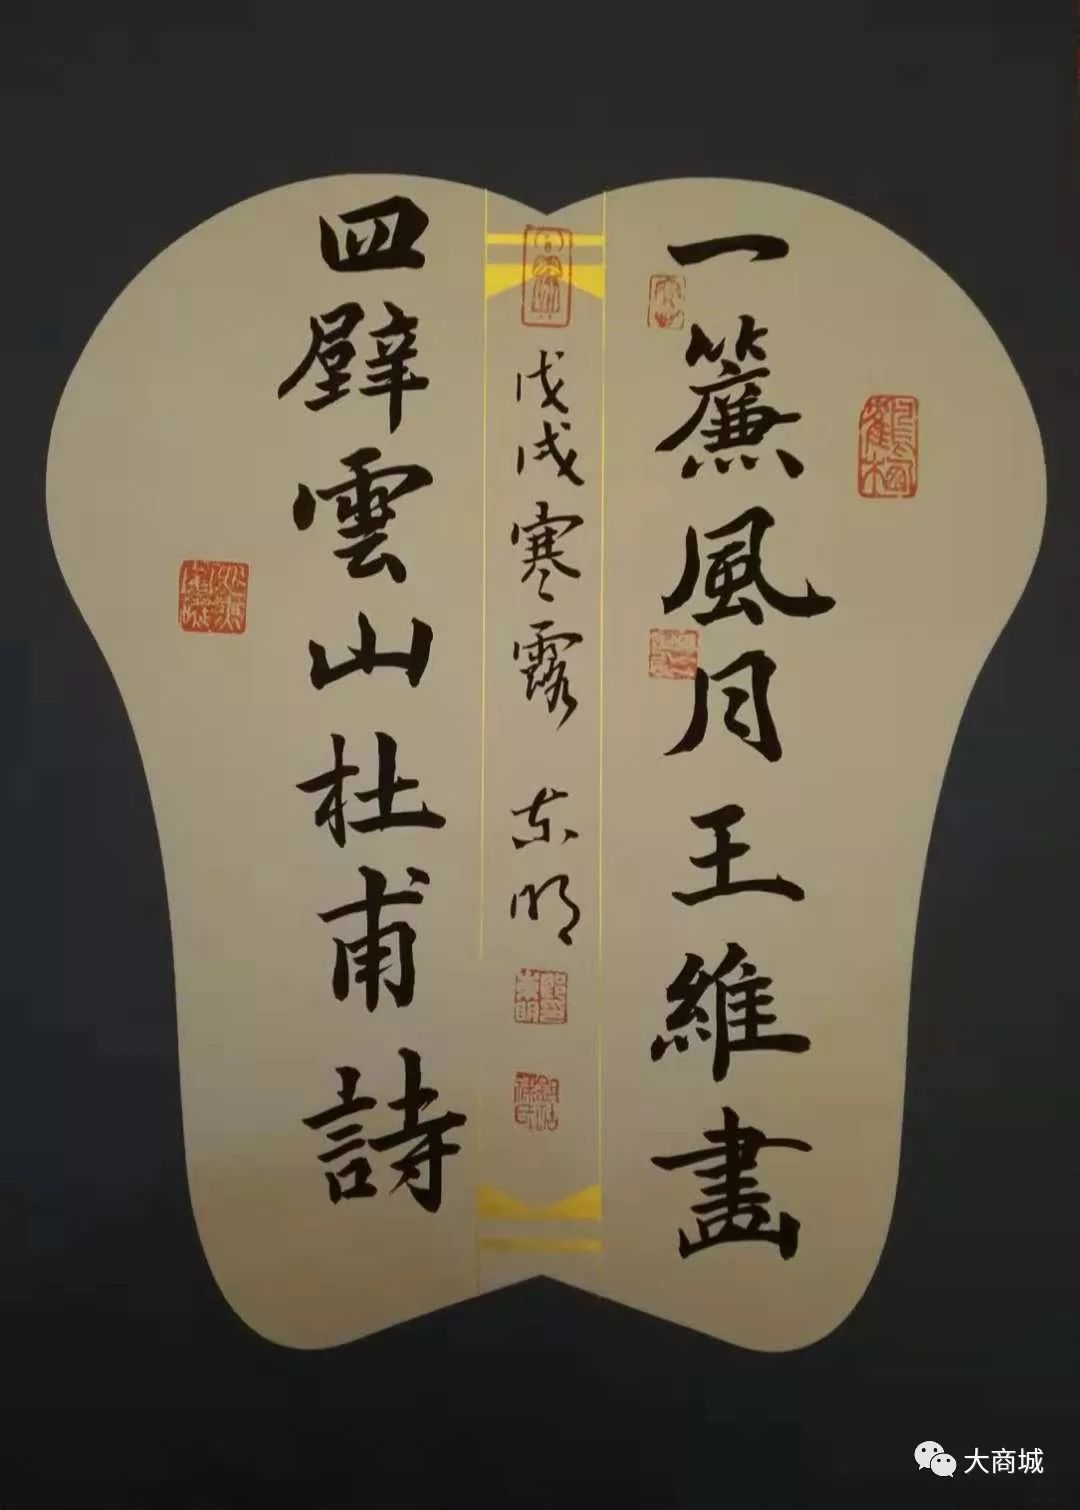 一簾風月王維畫
戊戌寒露 东明
四壁雲山杜甫詩
大商城